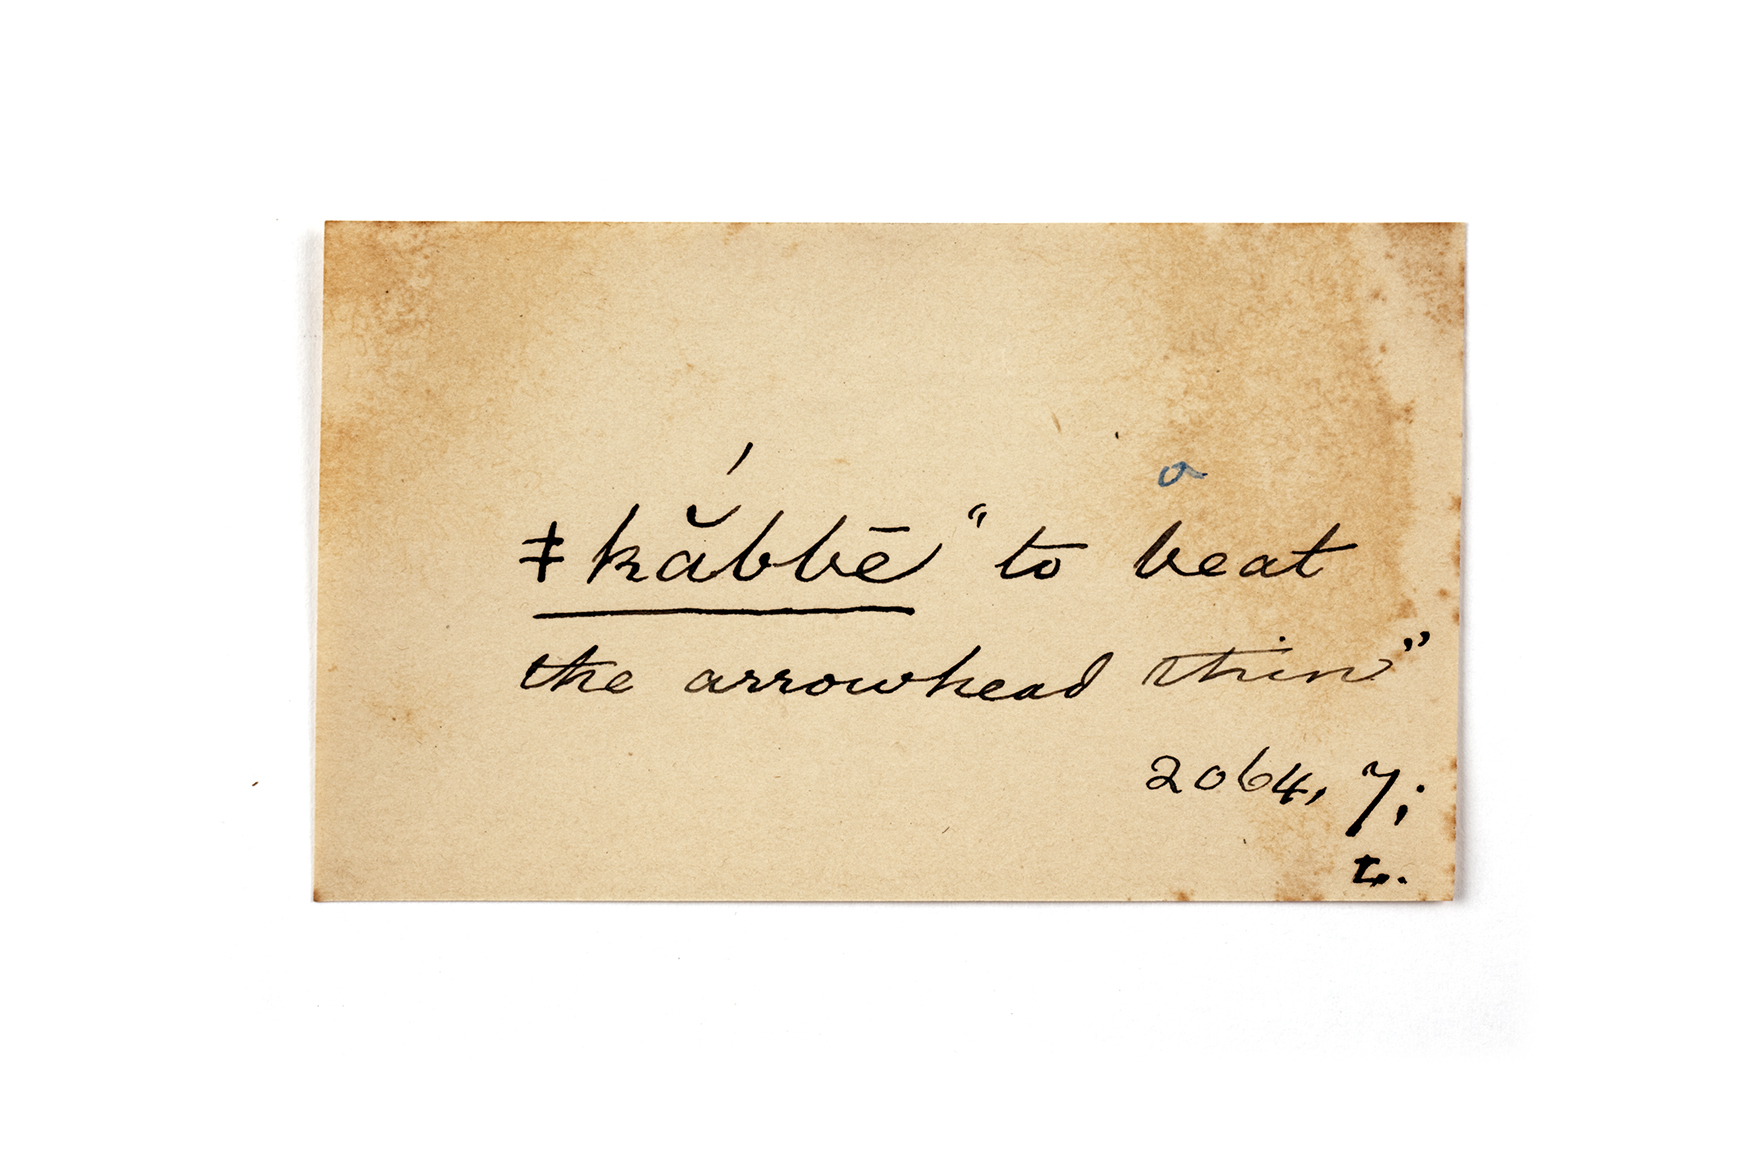 ǂkắbbē “to beat
the arrowhead thin”
2064, 7;